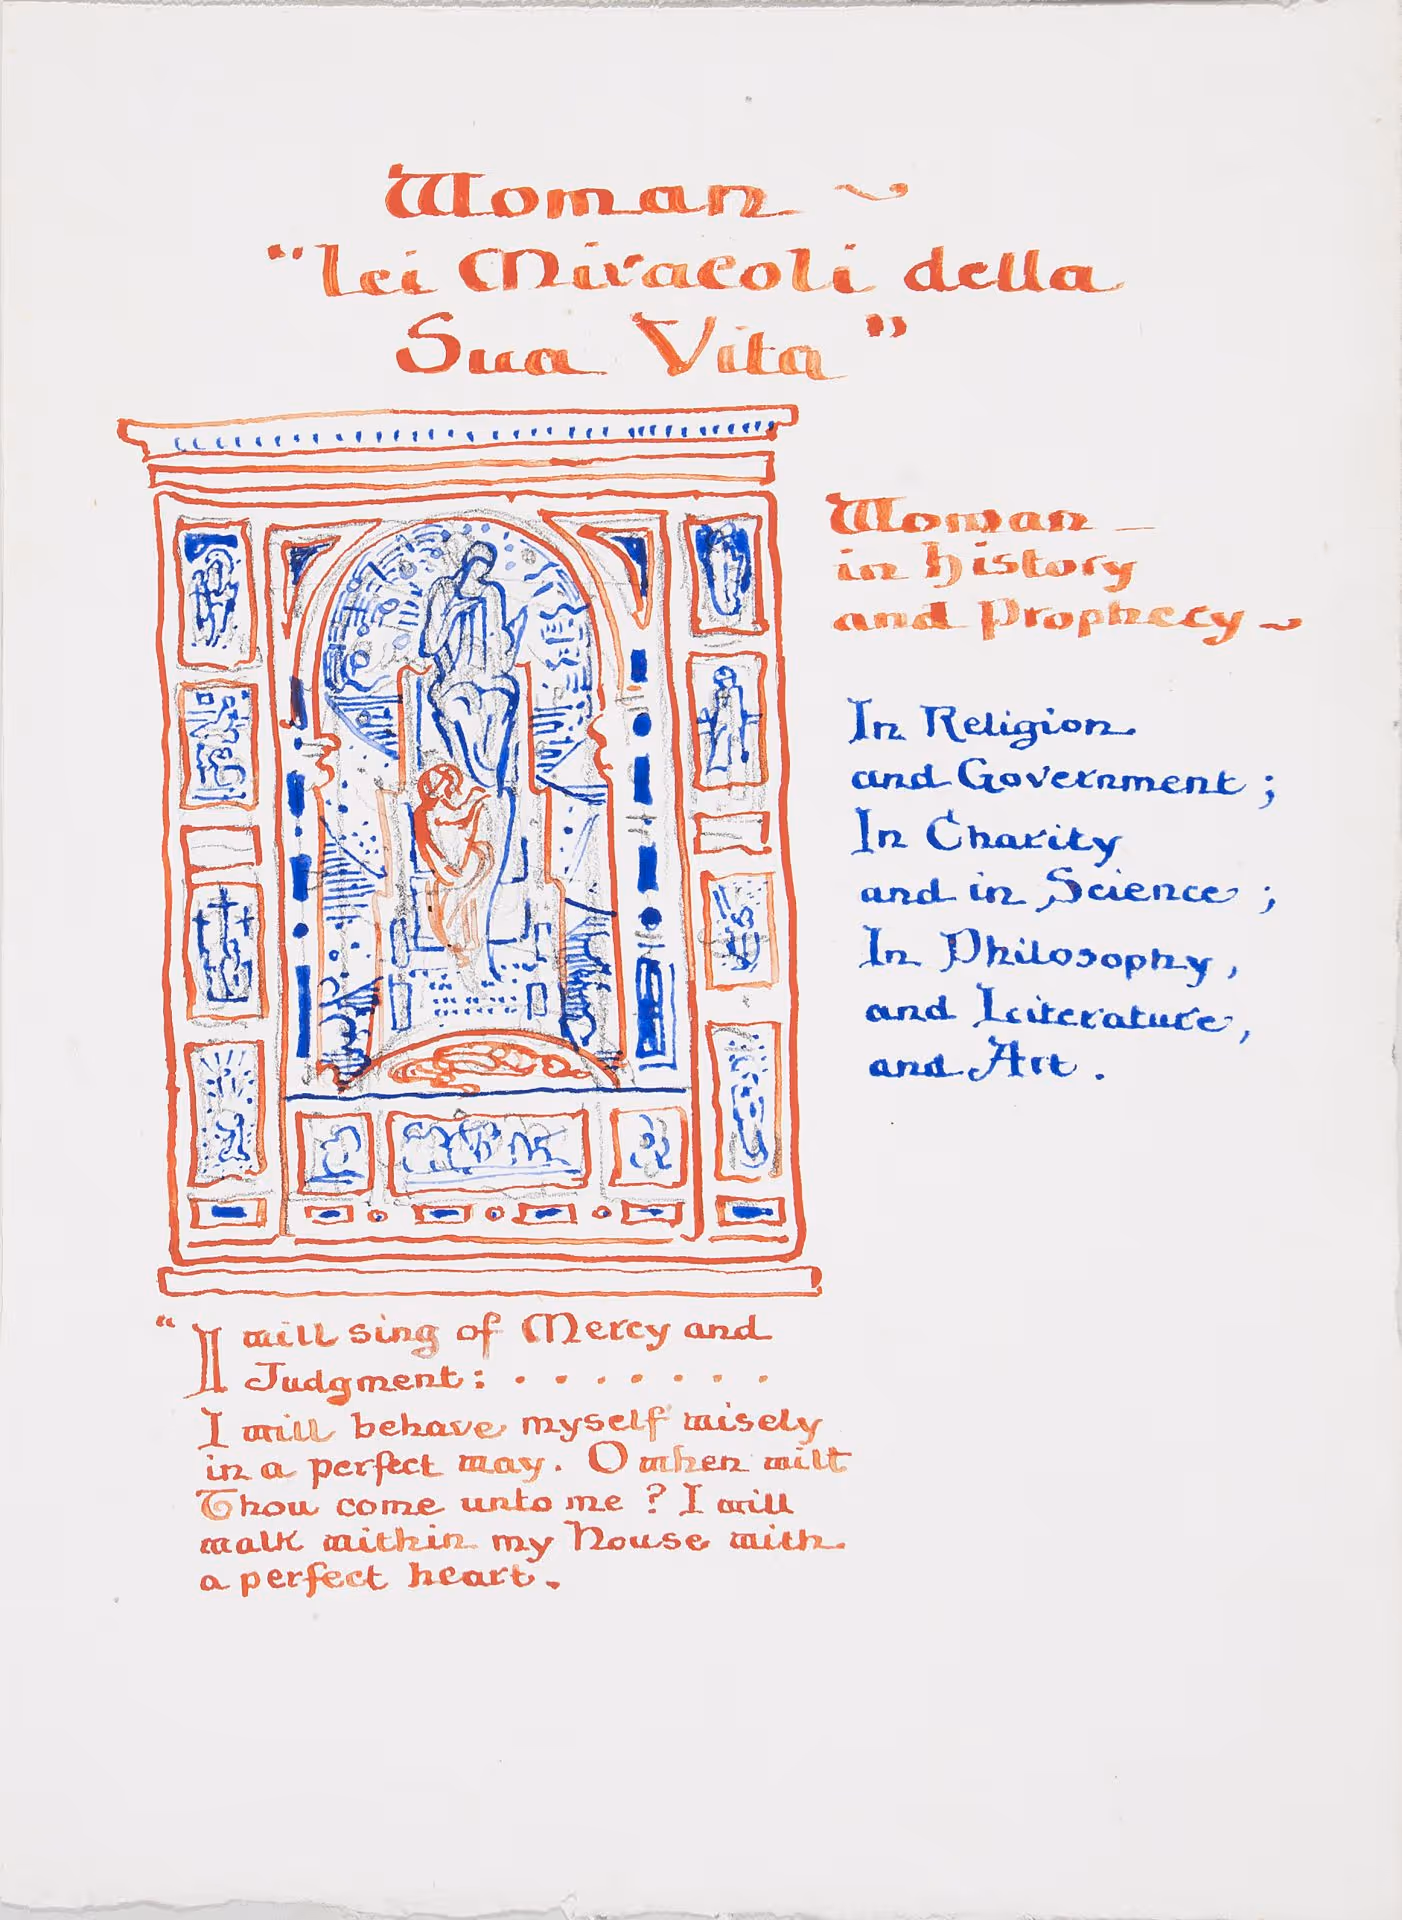 Woman ~
"Lei Miracoli della
Sua Vita"
Woman —
in history
and Prophecy ~
In Religion
and Government ;
In Charity
and in Science ;
In Philosophy,
and Leiterature,
and Art .
"I will sing of Mercy and
Judgment : . . . . . . .
I will behave myself wisely
in a perfect way. O when wilt
Thou come unto me ? I will
walk within my house with
a perfect heart .